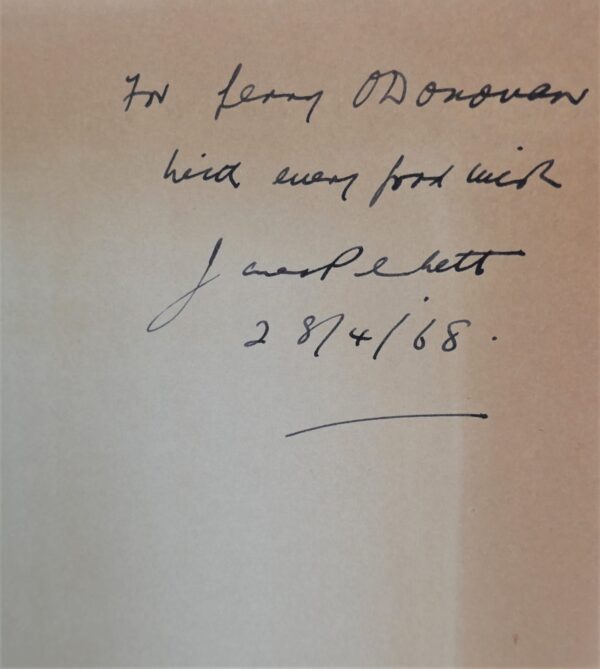 For ODonovan
with every good wish
James Plunkett
28/4/'68.